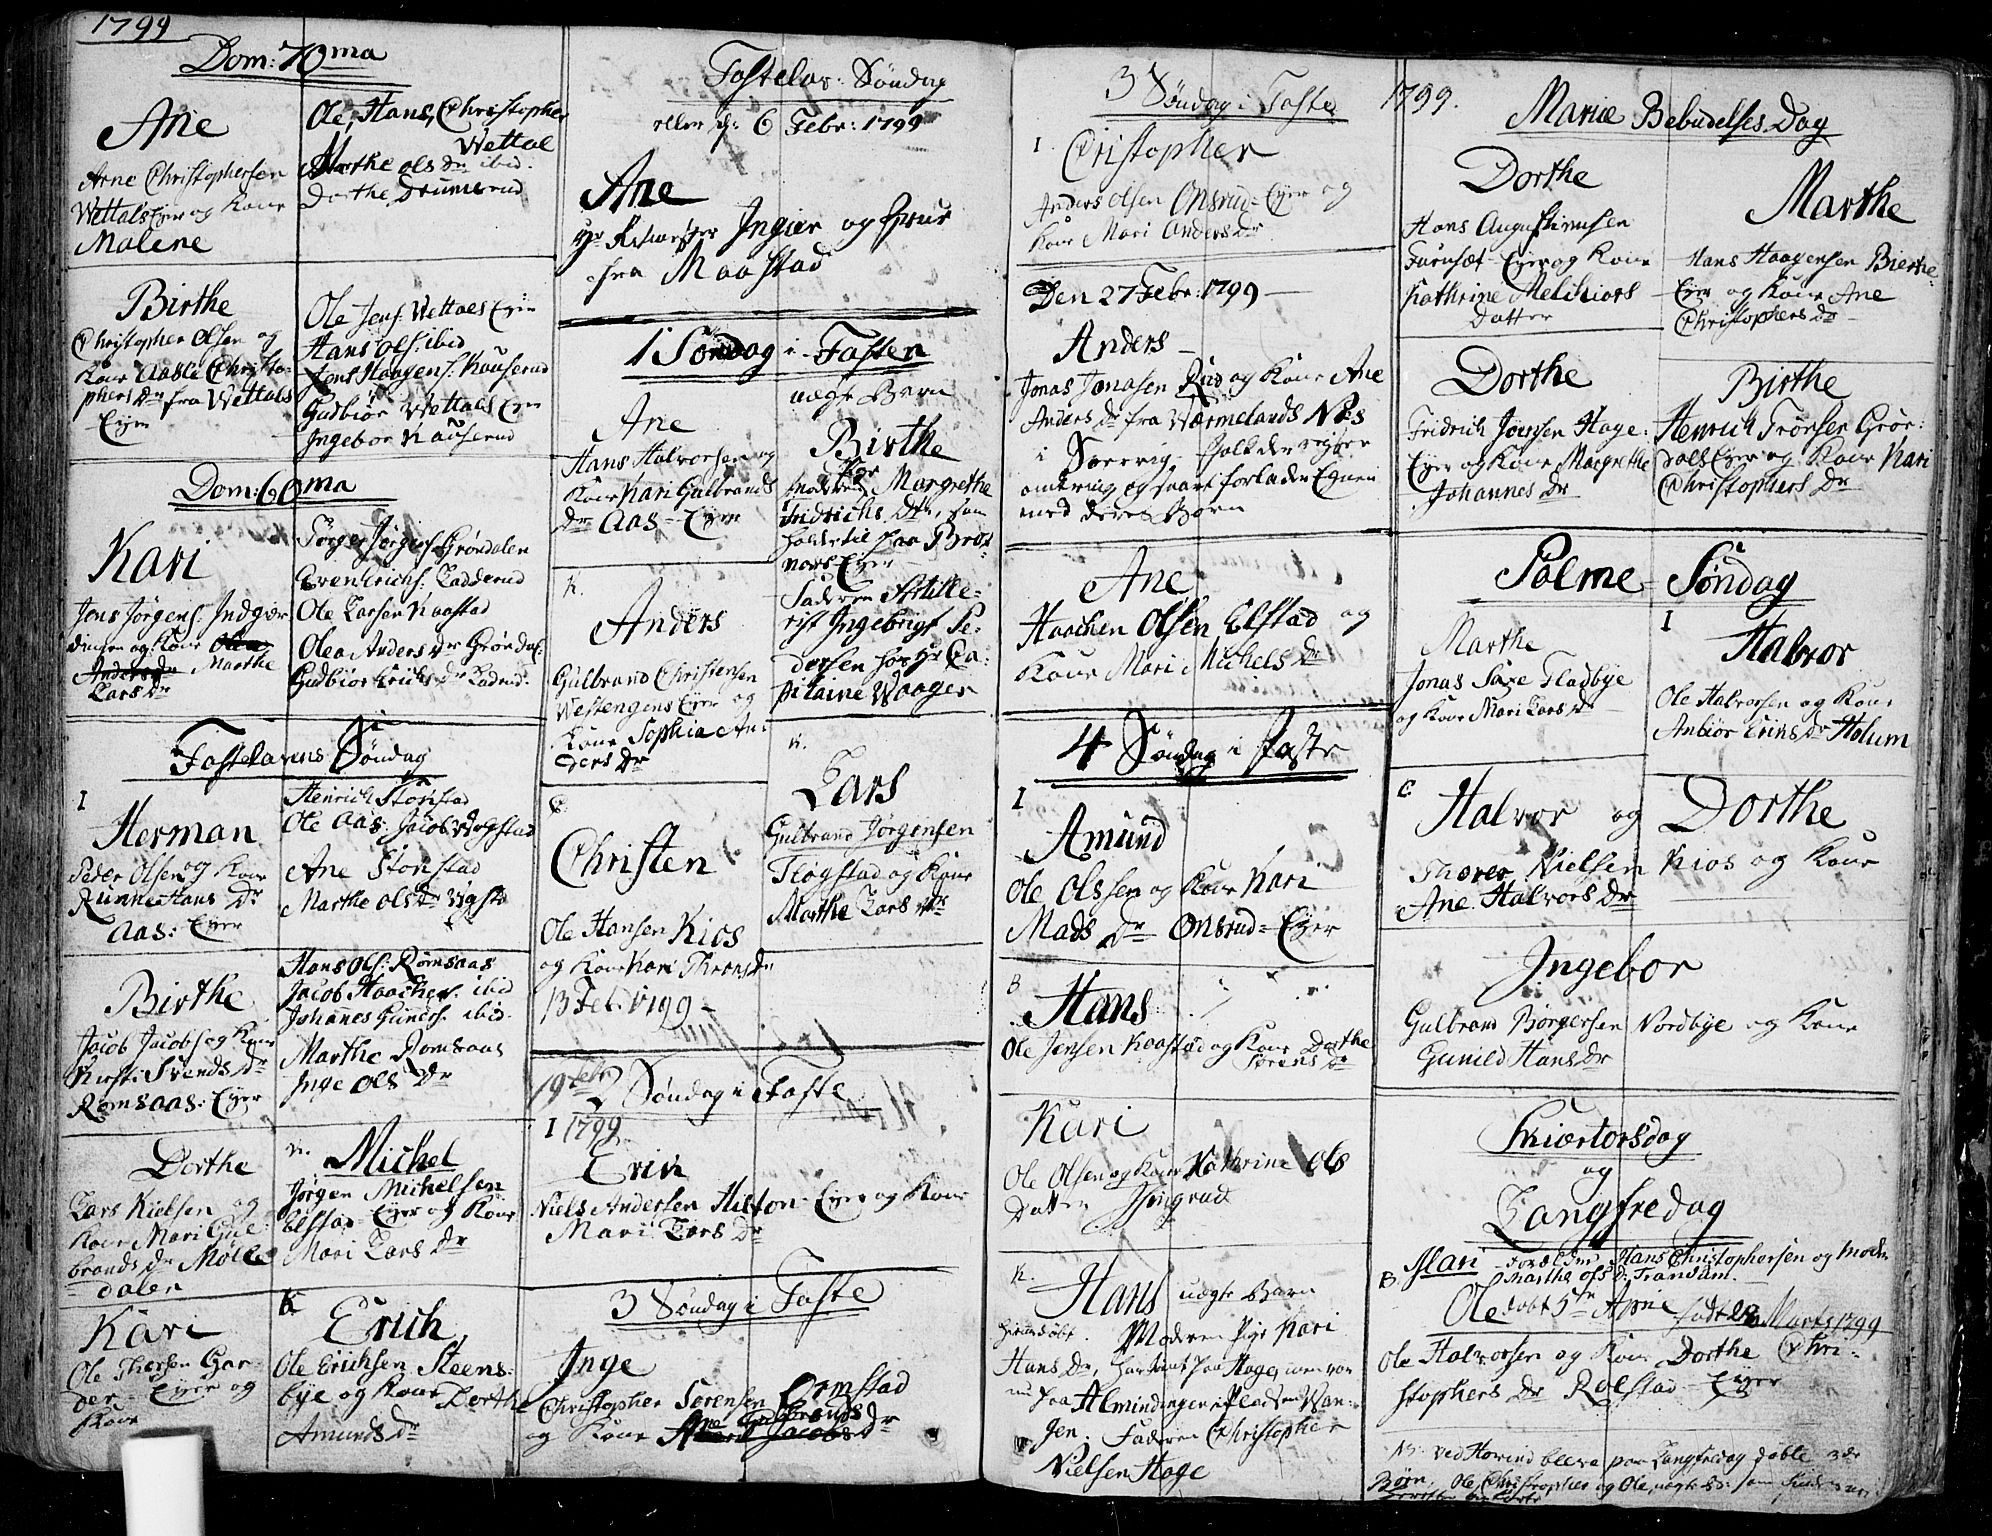 1799
Dom: 70ma
Ane
Arne Christophersen
Wettals Eyer og Kone
Malene
Ole, Hans, Christopher
Wettal
Marthe Ols Dr ibid.
Dorthe Drumerud
Birthe
Christopher Olsen og
Kone Aasle Christo-
phers Dr fra Wettals
Eyer
Ole Jens. Wettals Eyer
Hans Ols. ibid
Jens Haagens. Kauserud
Gudbiør Wettals Eyer
Ingebor Kauserud
Dom: 60ma
Kari
Jens Jørgens. Indgier
dingen og Kone
Marthe
Lars Dr
Jørger Jørgens. Grøndalen
Even Erichs. Ladderud
Ole Larsen Kaastad
Olea Anders Dr Grøndal.
Gudbiør Erichs Dr Laderud.
Fastelavens Søndag
I
Herman
Peder Olsen og Kone
Runne Hans Dr
Aas: Eyer
Henrich Storstad
Ole Aas. Jacob Wogstad
Ane Storstad
Marthe Ols Dr Wogstd
Birthe
Jacob Jacobs og Kone
Kirsti Svends Dr
Romsaas: Eyer
Hans Ols: Romsaas
Jacob Haachens. ibid
Johanes Guners. ibid.
Marthe Romsaas
Inge Ols Dr
Dorthe
Lars Nielsen og
Kone Mari Gul-
brands Dr Mølle
daler
K.
Michel
Jørgen Michelsen
Elstad - Eyer og Kone
Mari Lars Dr
Kari
Ole Thorsen Gar-
der - Eyer og
Kone
K
Erich
Ole Erichsen Steens-
bye og Kone Dorthe
Amunds Dr
Fastelav: Søndag
eller d: 6 Febr: 1799
Ane
Hr Ritmester Ingier og Frue
fra Maastad
1 Søndag i Fasten
Ane
Hans Halvorsen og
Kone Kari Gulbrands
Dr Aas - Eyer
uægte Barn
Birthe
Moderen Margrethe
Fridrichs Dtr, som
holder til paa Brot-
nors Eyer
Faderen Artille-
rist Ingebrigt Pe-
dersen hos Hr Ca-
pitaine Waager
K.
Anders
Gulbrand Christensen
Westengens Eyer og
Kone Sophia An-
ders Dr
K.
Lars
Gulbrand Jørgensen
Flogstad og Kone
Marthe Lars Dr
C
Christen
Ole Hansen Kios
og Kone Kari Throns Dr
13 Feb. 1799
19 Febr 2 Søndag i Faste
I 1799
Erik
Niels Andersen Hilton - Eyer og Kone
Mari Lars Dr
3 Søndag i Faste
Inge
Christopher Sørensen Ormstad
og Kone Ane Gulbrands Dr
3 Søndag i Faste
I
Christopher
Anders Olsen Onsrud - Eyer og
Kone Mari Anders Dr
Den 27 Febr: 1799
Anders
Jonas Jonasen Rud og Kone Ane
Anders Dr fra Wærmelands Nes
i Sverrig -
omkring og snart forlader Egnen
med deres Barn
Ane
Haachen Olsen Elstad og
Kone Mari Michels Dr
4 Søndag i Faste
I
Amund
Ole Olssen og Kone Kari
Mads Dr Onsrud - Eyer
B
Hans
Ole Jensen Kaastad og Kone Dorthe
Sørens Dr
Kari
Ole Olsen og Kone Kathrine Ols
Datter
K.
Hans uægte Barn
hiemdøbt. Moderen Pige Kari
Hans Dr, har tient paa Hage, men var
nu paa Almindingen i Pladsen Wan-
gen. Faderen Christopher
Nielsen Hage
1799.
Mariæ Bebudelses Dag
Dorthe
Hans Augustinusen
Furuset - Eyer og Kone
Kathrine Melchiors
Datter
Marthe
Hans Haagensen Bierke-
Eyer og Kone Ane
Christophers Dr
Dorthe
Fridrich Jensen Hage-
Eyer og Kone Margrethe
Johannes Dr
Birthe
Henrich Tronsen Grøn-
dals Eyer og Kone Kari
Christophers Dr
Palme Søndag
Marthe
Jonas Fladbye
og Kone Mari Lars Dr
I
Halvor
Ole Halvorsen og Kone
Anbiør Eriks Dr Holum
C
Halvor og Dorthe
Thorer Nielsen Kios og Kone
Ane Halvors Dr
Ingebor
Gulbrand Børgersen Nordbye og Kone
Gunild Hans Dr
Skiærtorsdag
og
Langfredag
B. Mari - Forældrer Hans Christophersen og Moder
Marthe Ols Dr Transam.
Ole døbt 5te April født 28 Marts 1799
Ole Halvorsen og Kone Dorthe Chri-
stophers Dr Rolstad - Eyer
NB. ved Hovind bleve paa Langfredag døbte 3de
Børn. Ole, Christopher og Ole, uægte